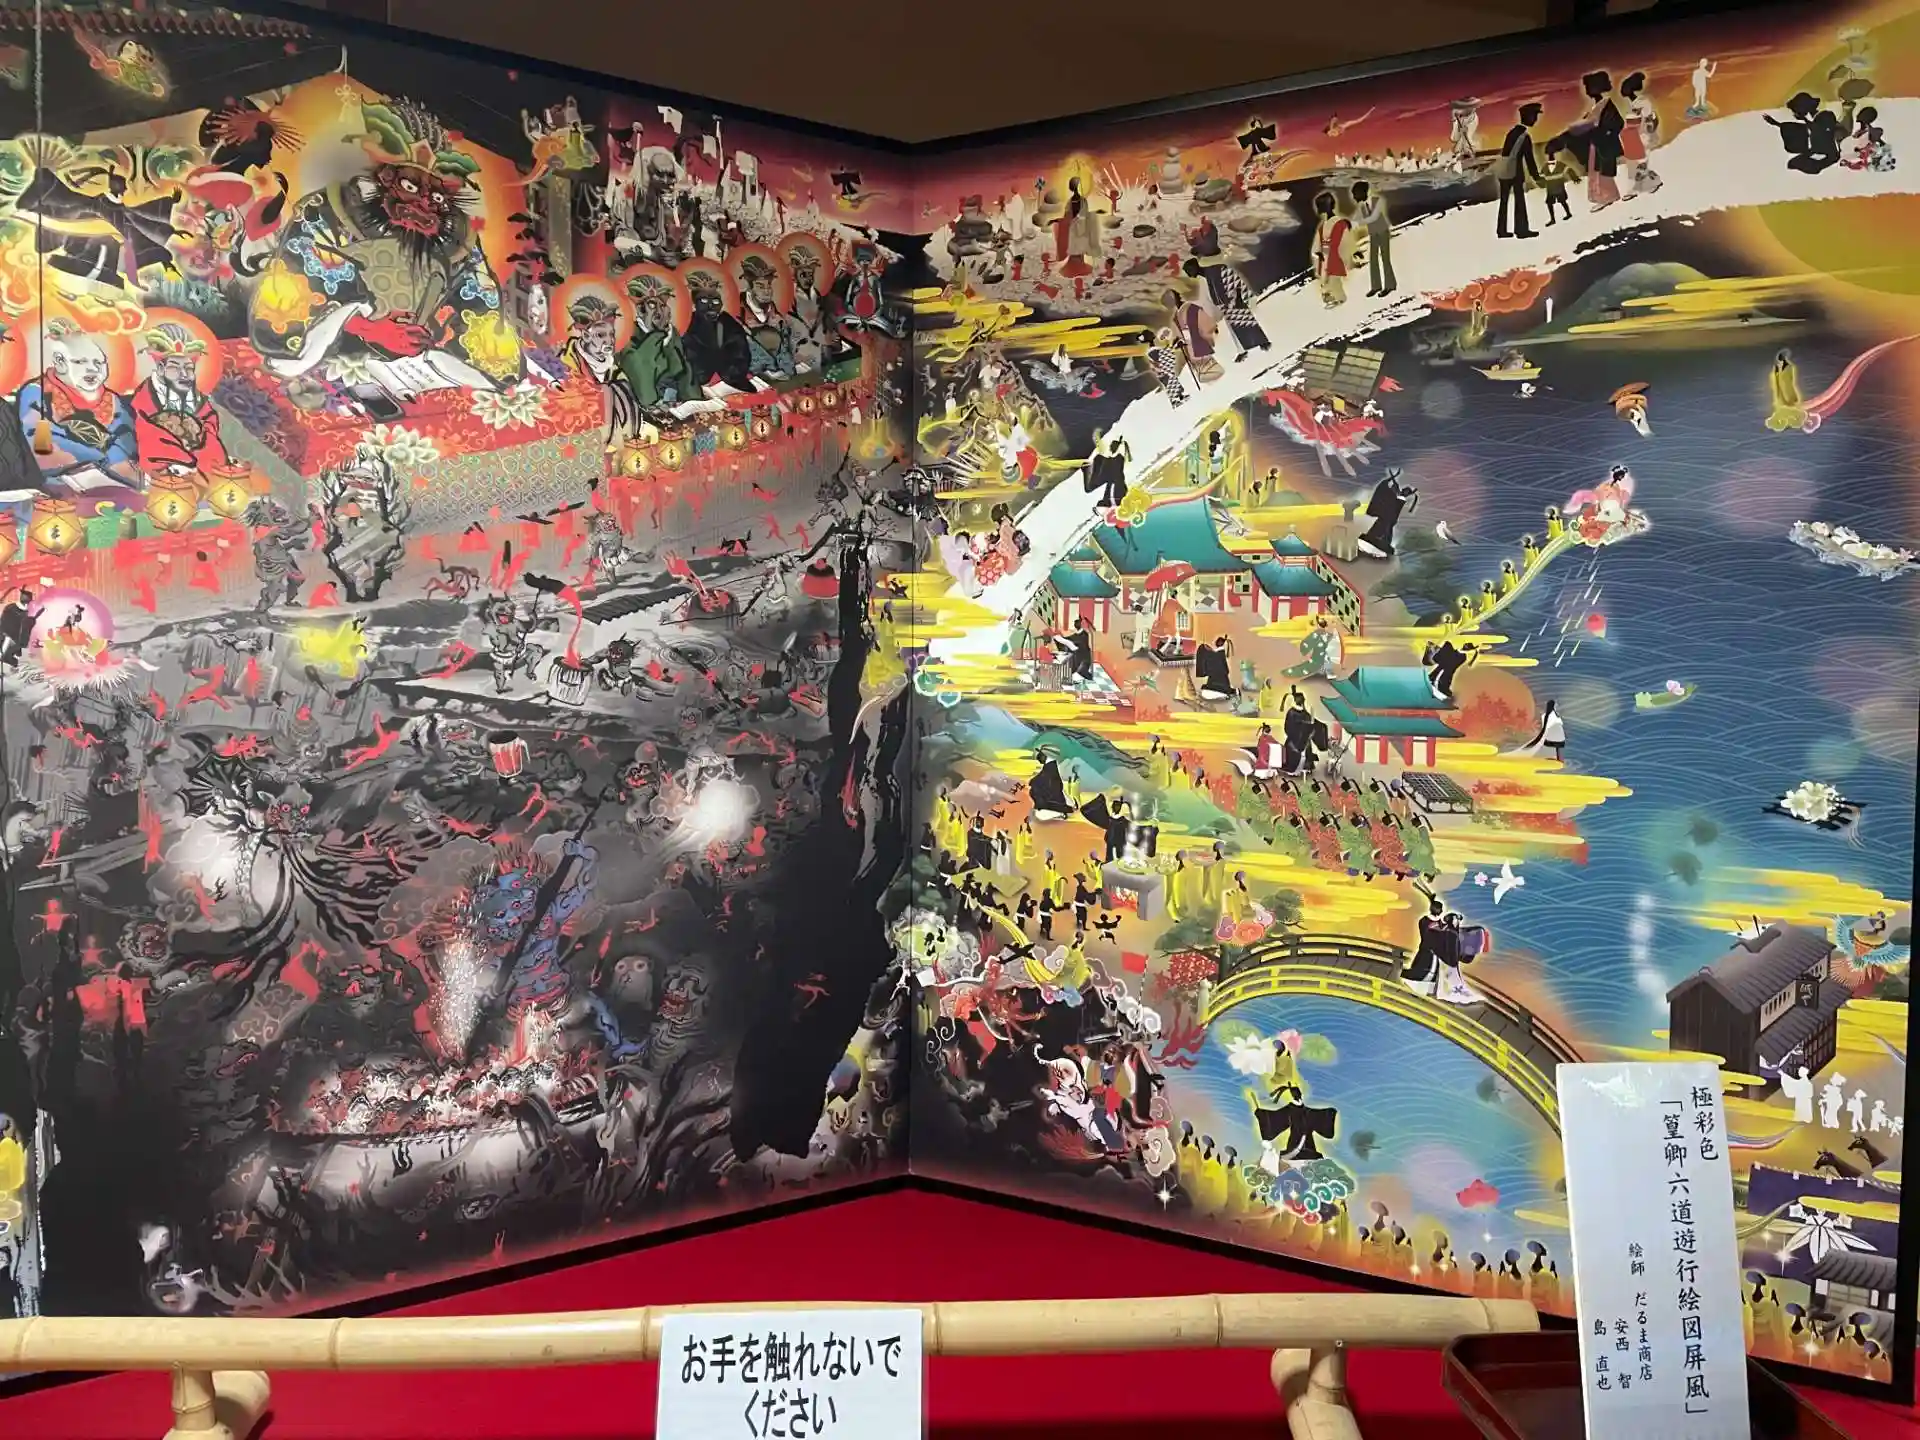 極彩色
「篁卿六道遊行絵図屏風」
絵師 だるま商店
安西 智
島 直也
お手を触れないで
ください